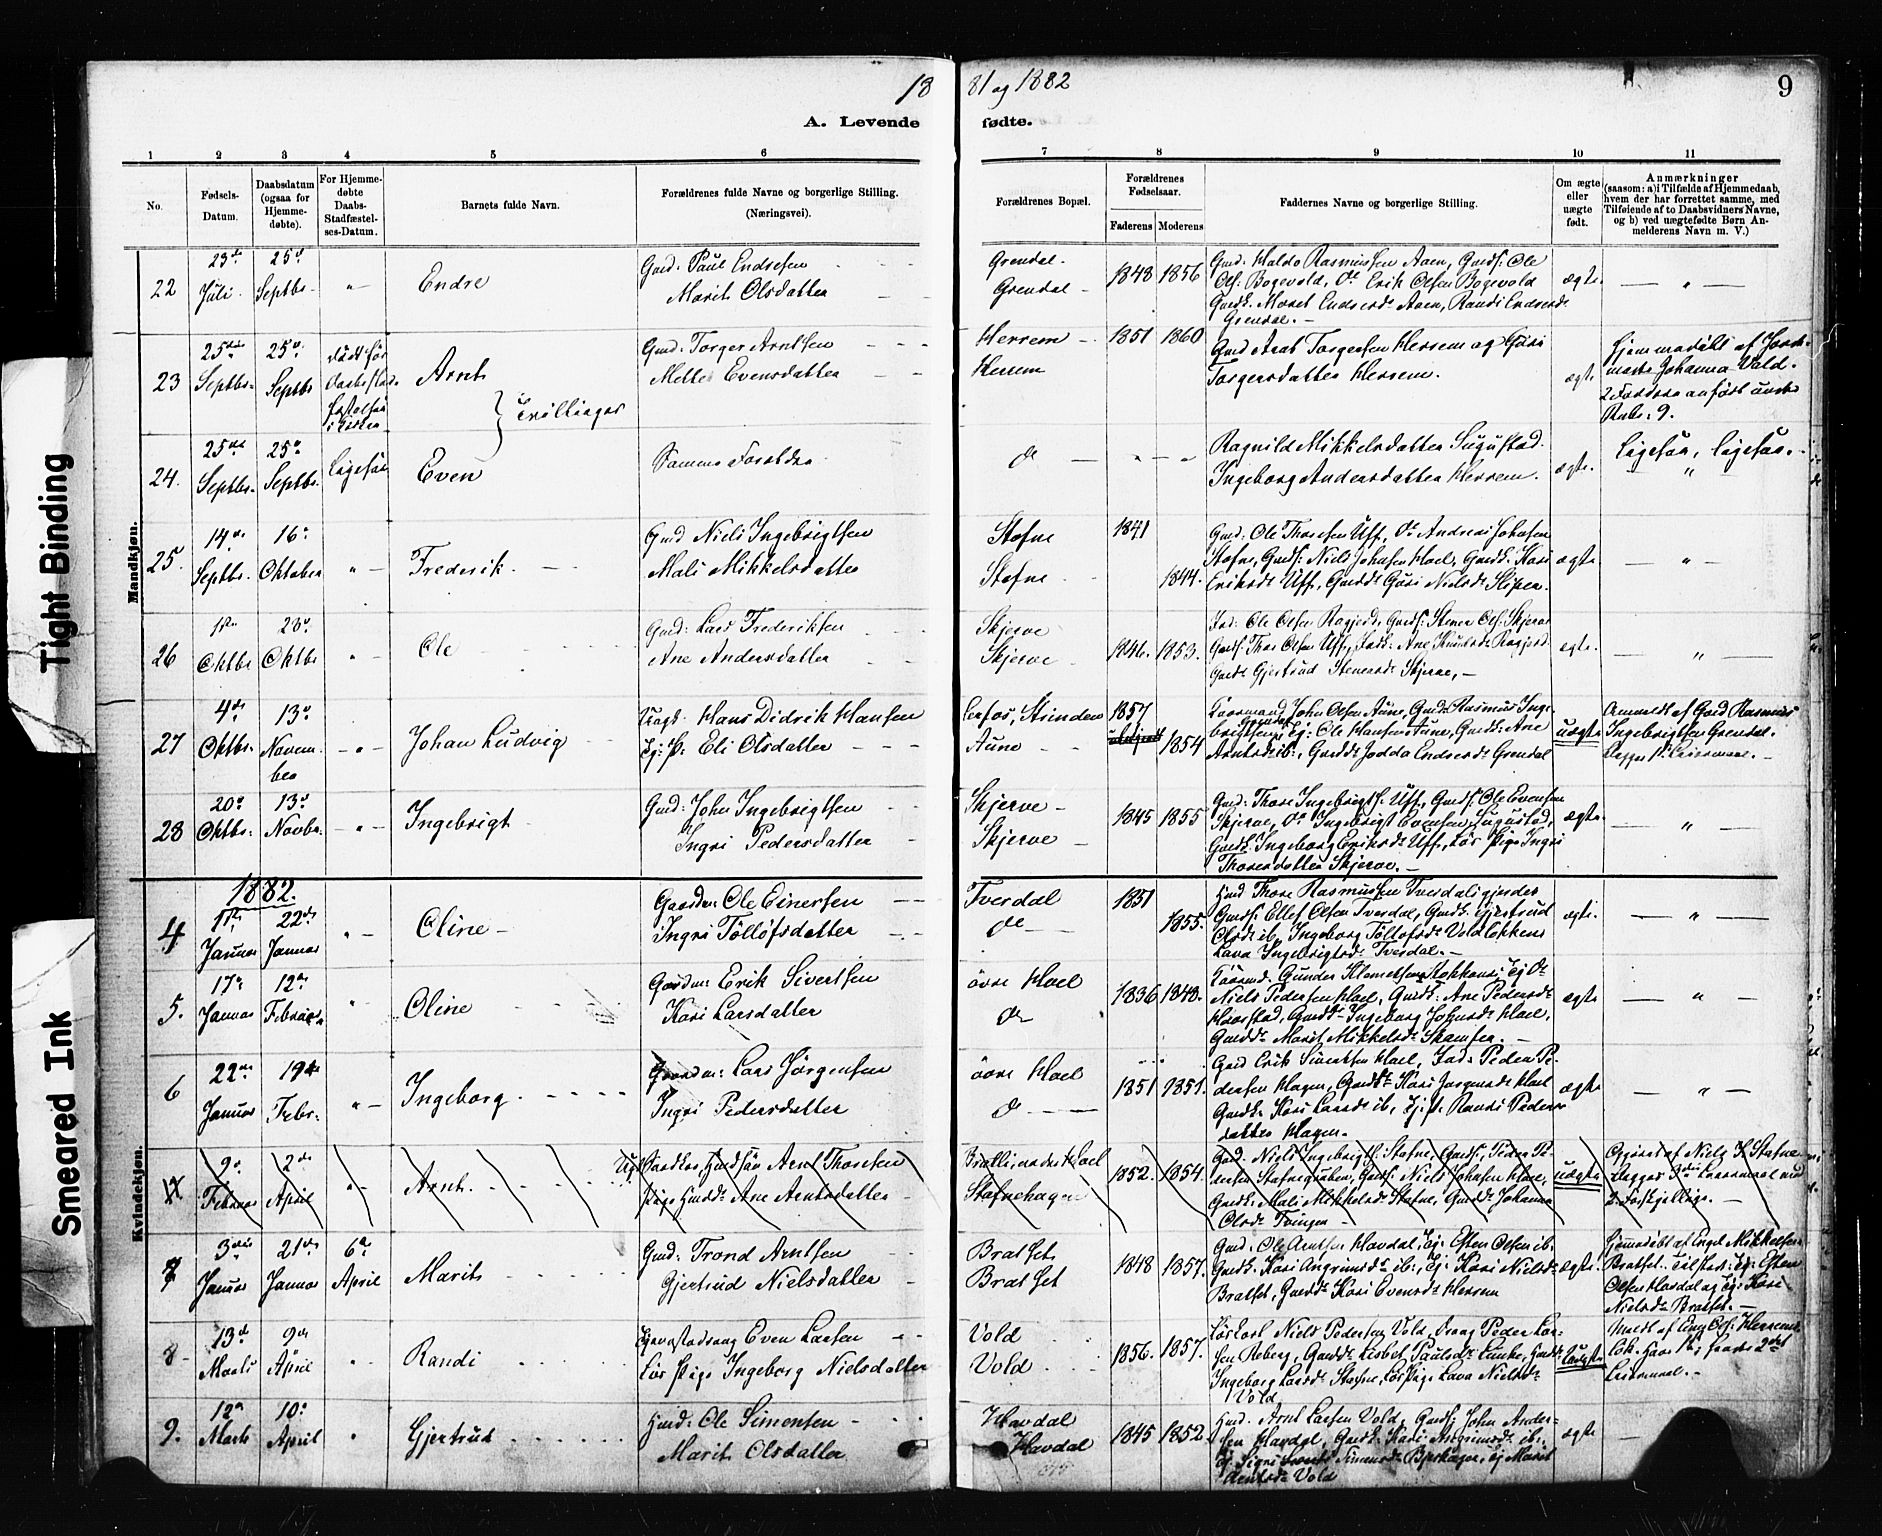 18
81 og 1882
9
A. Levende
fødte.
1 2 3 4 5 6
7 8 9 10 11
No.
Fødsels-Datum.
Daabsdatum (ogsaa for Hjemme-døbte).
For Hjemme-døbte Daabs-Stadfæstel-ses-Datum.
Barnets fulde Navn.
Forældrenes fulde Navne og borgerlige Stilling. (Næringsvei).
Forældrenes Bopæl.
Forældrenes Fødselsaar.
Faderens Moderens
Faddernes Navne og borgerlige Stilling.
Om ægte eller uægte født.
Anmærkninger
(saasom: a) i Tilfælde af Hjemmedaab,
hvem der har forrettet samme, med
Tilføiende af to Daabsvidners Navne,
og b) ved uægtefødte Børn An-
melderens Navn m. V.)
Mandkjøn.
22 23de Juli 25d Septbr. " Endre
Gmd: Paul Endresen
Marit Olsdatter
Grendal
Grendal
1848 1856
Gmd: Haldo Rasmussen Aaen, Gmds: Ole
Ols: Bogevold, Do Erik Olsen Bogevold
Gmdk. Marit Endresdr Aaen, Randi Endresdr
Grendal.
ægte. "
23 25de Septbr. 25d Septbr
Arnt
Tvillinger
Gmd: Torger Arntsen
Mette Evensdatter
Herrem
Herrem
1851 1860
Gmd Arnt Torgersen Herrem og Guri
Torgersdatter Herrem.
ægte
Hjemmedøbt af Jorde-
moder Johanna Vold.
2 Faddere anført under
Rubr: 9.
24. 25de Septbr. 25d Septbr. Ligesaa Even
Samme Forældre
do " "
Ragnild Mikkelsdatter Sugustad.
Ingeborg Andersdatter Herrem.
ægte.
Ligesaa, ligesaa.
25. 14de Septbr. 16d Oktober " Frederik.
Gmd Niels Ingebrigtsen
Mali Mikkelsdatter
Stofne
Stofne
1841
1844.
Gmd: Ole Thoresen Uff, Do Andreas Johnsen
Stofne, Gmds: Niels Johnsen Hoel, Gmdk: Kari
Eriksdr Uff, Gmdd: Guri Nielsdr Slipen.
ægte. "
26 1ste Oktbr 23d Oktbr " Ole
Gmd: Lars Frederiksen
Ane Andersdatter
Skjerve
Skjerve
1846. 1853.
Gmds: Thor Olsen Uff,
Gmdd: Gjertrud Stenersdr Skjerve,
ægte. "
27 4de Oktbr. 13d Novem-ber " Johan Ludvig
Hans Didrik Hansen
Ej: P: Eli Olsdatter
Lerfos, Strinden
Aune
1857
1854
Kaarmand John Olsen Aune, Gmd: Rasmus Inge-
brigtsen Grendal, Ej: Ole Hansen Aune, Gmdk: Ane
Arntsdr ib:, Gmdd: Jodda Endresdr Grendal
uægte
Anmeldt af Gmd Rasmus
Ingebrigtsen Grendal.
Begges 1ste Leiermaal.
28 20d Oktbr. 13d Novbr. " Ingebrigt
Gmd: John Ingebrigtsen
Ingri Pedersdatter
Skjerve
Skjerve
1845 1855
Gmd: Thore Ingebrigts: Uff, Gmds: Ole Evensen
Skjerve, Do Ingebrigt Evensen Sugustad,
Gmdk: Ingeborg Eriksdr Uff, Løs Pige Ingri
Thoresdatter Skjerve.
ægte. "
1882.
Kvindekjøn.
4 11te Januar 22de Januar " Oline
Gaardm: Ole Einersen
Ingri Tølløfsdatter
Tverdal
do
1851
1855.
Hmd Thore Rasmussen Tverdalsgjerdet
Gmds: Ellef Olsen Tverdal, Gmdk: Gjertrud
Olsdr ib, Ingeborg Tølløfsdr Voldløkken
Lava Ingebrigtsdr Tverdal.
ægte. "
5. 17de Januar 12te Februar " Oline
Gaardm: Erik Sivertsen
Kari Larsdatter
øvre Hoel
do
1836 1848.
Kaarmd. Gunder Klemetsen Stokkan, Ej Do
Niels Pedersen Hoel, Gmdk: Ane Pedersdr
Haarstad, Gmdd: Ingeborg Johnsdr Hoel,
Gmdd: Marit Mikkelsdr Skamfer.
ægte "
6 22de Januar 19de Febr. " Ingeborg.
Gaardm: Lars Jørgensen
Ingri Pedersdatter
øvre Hoel
do
1851 1851.
Gmd Erik Sivertsen Hoel, Ind: Peder Pe-
dersen Hagen, Gmdd: Kari Jørgensdr Hoel
Gmdk. Kari Larsdr ib, Ej: P. Randi Peders-
datter Hagen.
ægte "
9d Februar 2den April " Arnt.
Ugt Gaardkar, Gmdsøn Arnt Thoresen
Pige Gmdd: Ane Arntsdatter
Bratli, nedre Hoel
Stofnehagen
1852. 1854.
Gmd. Niels Ingebrigts. Stofne, Gmds: Peder Pe-
dersen Stofnegruben, Gmds: Niels Johnsen Hoel,
Gmdk: Mali Mikkelsdr Stofne, Gmdd: Johanna
Olsdr Tingen
uægte
Opgivet af Niels I. Stofne
Begges 3die Leiermaal med
2 forskjellige.
7 3die Januar 21de Januar 6te April Marit
Gmd: Trond Arntsen
Gjertrud Nielsdatter
Bratset
Bratset
1848 1857.
Gmd. Ole Arntsen Havdal, Ej: Esten Olsen ib.
Gmdk. Kari Angrimsdr ib:, Ej: Kari Nielsdr
Bratset, Gmdd: Kari Evensdr Herrem
ægte.
Hjemmedøbt af Engel Mikkelsen
Bratset. Tilsted: Ej: Esten
Olsen Havdal og Ej: Kari
Nielsdr Bratset.
8 13d Marts 9de April " Randi
Even Larsen
Løs Pige Ingeborg Nielsdatter
Vold
Vold
1856. 1857.
Løskarl Niels Pedersen Vold, Peder Lar-
sen Reberg, Gmdd: Lisbet Paulsdr Lunke,
Ingeborg Larsdr Stofne, Løs Pige Lava Nielsdr
Vold
uægte
Meldt af Herrem
Leiermaal.
9. 12te Marts 10d April " Gjertrud
Hmd: Ole Simonsen
Marit Olsdatter
Havdal
Havdal
1845 1852
Hmd. Arnt Larsen Vold, Gmds: John Ander-
sen Havdal, Gmdk. Kari Angrimsdr ib:,
Ej Sigri Simonsdr Bjerkager, Ej Marit
Arntsdr Vold
ægte
Tight Binding
Smeared Ink